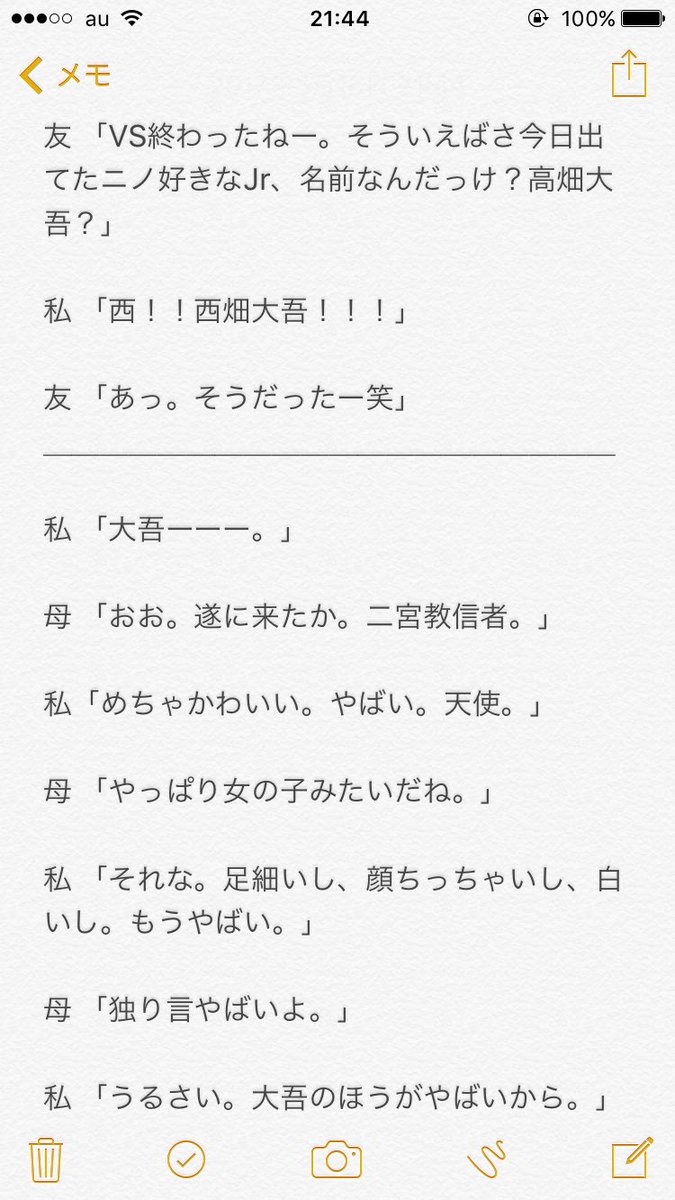 au 21:44 100%
メモ
友 「VS終わったねー。そういえばさ今日出
てたニノ好きなJr、名前なんだっけ？高畑大
吾？」
私 「西！！西畑大吾！！！」
友 「あっ。そうだったー笑」
私 「大吾ーーー。」
母 「おお。遂に来たか。二宮教信者。」
私「めちゃかわいい。やばい。天使。」
母 「やっぱり女の子みたいだね。」
私 「それな。足細いし、顔ちっちゃいし、白
いし。もうやばい。」
母 「独り言やばいよ。」
私 「うるさい。大吾のほうがやばいから。」